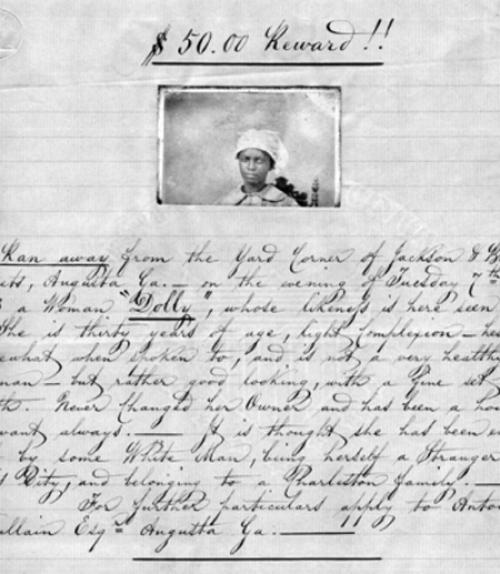 $ 50.00 Reward !!
Ran away from the Yard Corner of Jackson &
Augusta Ga. — on the evening of Tuesday 7th
a Woman "Dolly", whose likeness is here seen
She is thirty years of age, light Complexion — hes
ewhat when spoken to, and is not a very health
man — but rather good looking, with a fine set
th. Never Changed her Owner and has been a hou
vant always. — It is thought she has been en
by some White Man, being herself a Stranger
s City, and belonging to a Charleston family. —
For further particulars apply to Anto
llain Esqr Augusta Ga. —